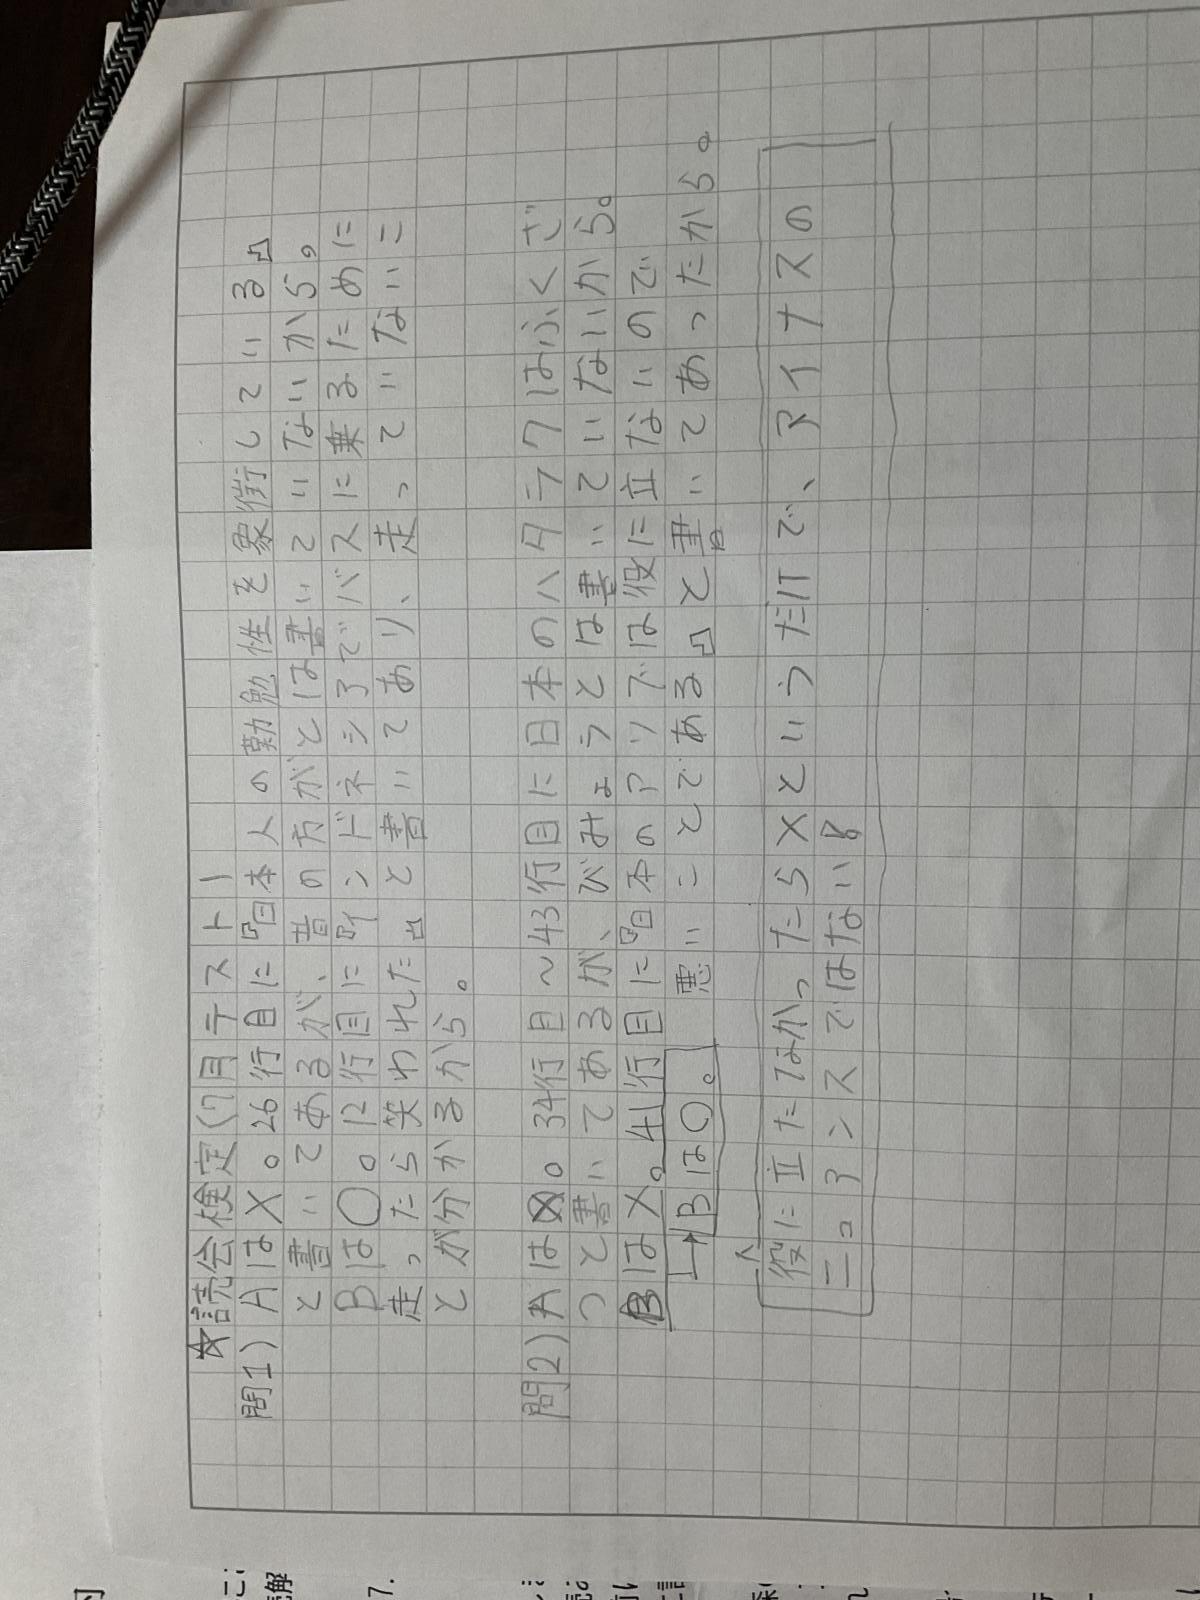 ☆読会検定(7月テスト)
問1)Aは×。26行目に『日本人の勤勉性を象徴している』
と書いてあるが、昔の方がとは書いていないから。
Bは〇。12行目に『インドネシアでバスに乗るために
走ったら笑われた』と書いてあり、走っていないこ
とが分かるから。
問2)Aは⊗。34行目〜43行目に日本のハタラクはふくざ
つと書いてあるが、びみょうとは書いていないから。
Bは×。41行目に『日本のアリでは役に立たないので
悪いことである』と書いてあったから。
→Bは〇。
役に立たなかったら×というだけで、マイナスの
ニュアンスではない!
こ
解
7.